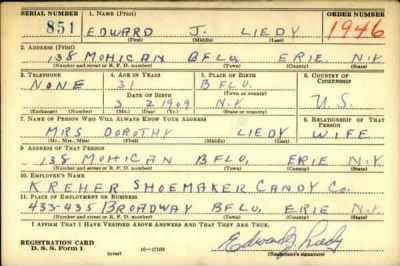 SERIAL NUMBER 1. NAME (Print) ORDER NUMBER
851 EDWARD J. LIEDY 1946
(First) (Middle) (Last)
2. ADDRESS (Print)
138 MOHICAN BFLO, ERIE N.Y.
(Number and street or R. F. D. number) (Town) (County) (State)
3. TELEPHONE 4. AGE IN YEARS 5. PLACE OF BIRTH 6. COUNTRY OF CITIZENSHIP
NONE 31 BFLO.
DATE OF BIRTH (Town or county)
3 2 1909 N.Y. U.S.
(Exchange) (Number) (Mo.) (Day) (Yr.) (State or country)
7. NAME OF PERSON WHO WILL ALWAYS KNOW YOUR ADDRESS 8. RELATIONSHIP OF THAT PERSON
MRS DOROTHY LIEDY WIFE
(Mr., Mrs., Miss) (First) (Middle) (Last)
9. ADDRESS OF THAT PERSON
138 MOHICAN BFLO, ERIE N.Y.
(Number and street or R. F. D. number) (Town) (County) (State)
10. EMPLOYER'S NAME
KREHER SHOEMAKER CANDY CO.
11. PLACE OF EMPLOYMENT OR BUSINESS
433-435 BROADWAY BFLO, ERIE N.Y.
(Number and street or R. F. D. number) (Town) (County) (State)
I AFFIRM THAT I HAVE VERIFIED ABOVE ANSWERS AND THAT THEY ARE TRUE.
REGISTRATION CARD
D. S. S. Form 1 (over) Edward J. Liedy
(Registrant's signature)